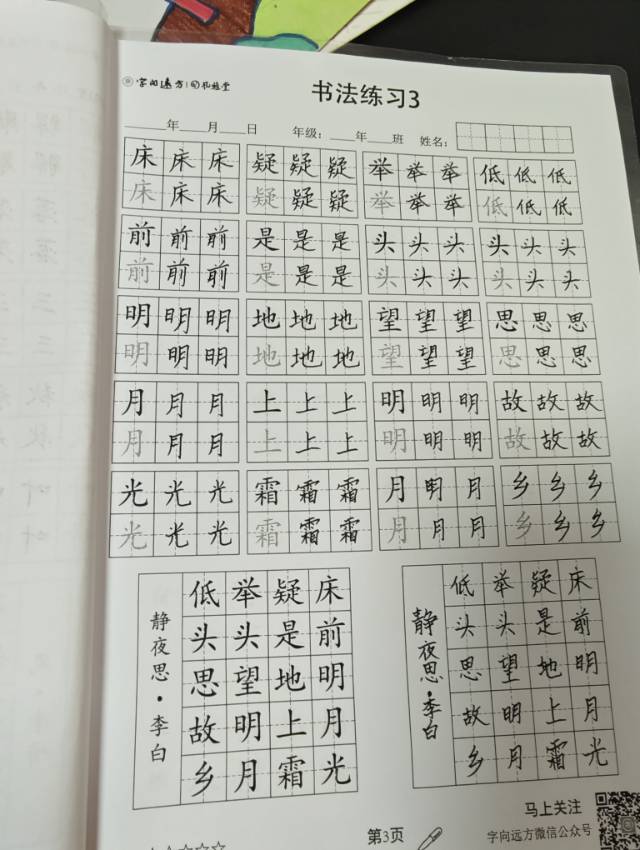 字向远方
书法练习3
年 月 日 年级: 年 班 姓名:
床 床 床 疑 疑 疑 举 举 举 低 低 低
床 床 床 疑 疑 疑 举 举 举 低 低 低
前 前 前 是 是 是 头 头 头 头 头 头
前 前 前 是 是 是 头 头 头 头 头 头
明 明 明 地 地 地 望 望 望 思 思 思
明 明 明 地 地 地 望 望 望 思 思 思
月 月 月 上 上 上 明 明 明 故 故 故
月 月 月 上 上 上 明 明 明 故 故 故
光 光 光 霜 霜 霜 月 明 月 乡 乡 乡
光 光 光 霜 霜 霜 月 月 月 乡 乡 乡
床前明月光
疑是地上霜
举头望明月
低头思故乡
静夜思·李白
床前明月光
疑是地上霜
举头望明月
低头思故乡
静夜思·李白
马上关注
字向远方微信公众号
第3页